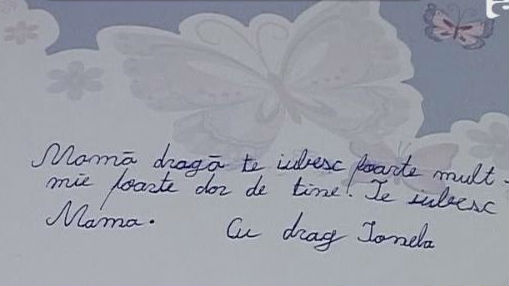 Mamā dragā te iubesc foarte mult -
mie foarte dor de tine! Te iubesc
Mama. Cu drag Ionela